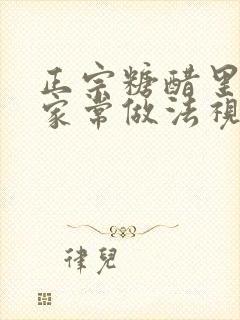 正宗糖醋里
家常做法视
律儿